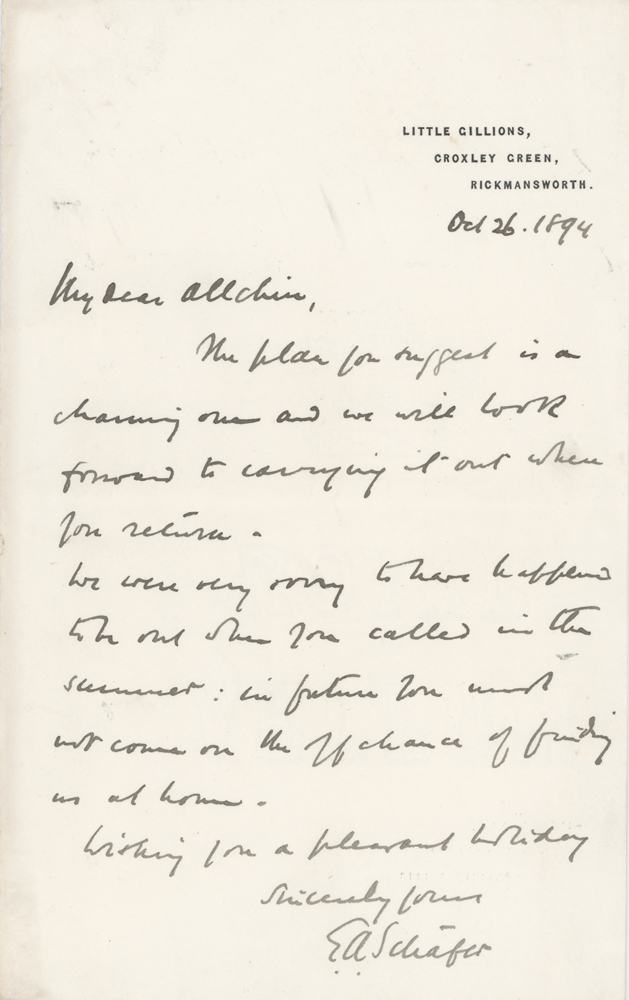 LITTLE GILLIONS,
CROXLEY GREEN,
RICKMANSWORTH.
Oct 26. 1894
My dear Allchin,
The plan you suggest is a
charming one and we will look
forward to carrying it out when
you return.
We were very sorry to have happened
to be out when you called in the
summer: in future you must
not come on the off chance of finding
us at home.
Wishing you a pleasant holiday
Sincerely yours
E A Schäfer